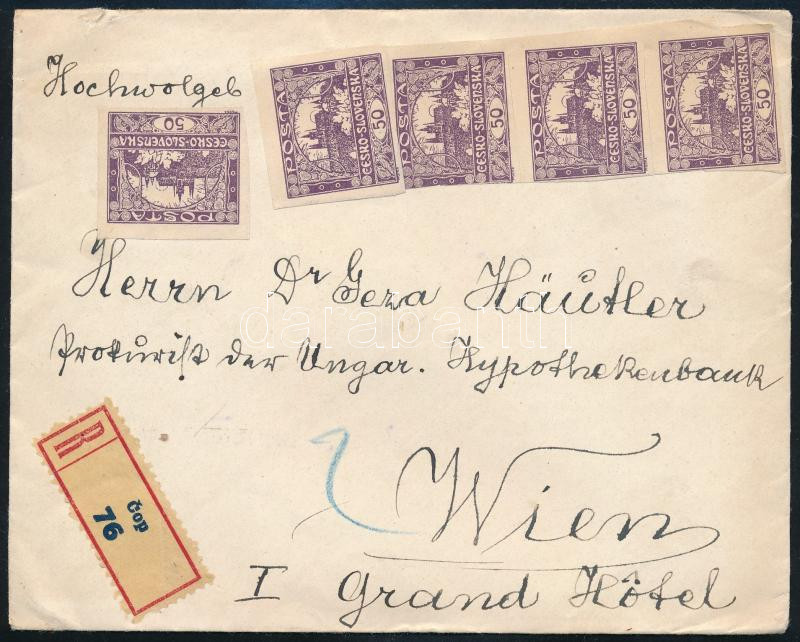 Hochwolgeb
POSTA
ČESKO-SLOVENSKÁ
50
POSTA
ČESKO-SLOVENSKÁ
50
POSTA
ČESKO-SLOVENSKÁ
50
POSTA
ČESKO-SLOVENSKÁ
50
POSTA
ČESKO-SLOVENSKÁ
50
Herrn Dr Geza Häutler
Prokurist der Ungar. Hypothekenbank
darabanth
R
Čop
76
Wien
I Grand Hôtel